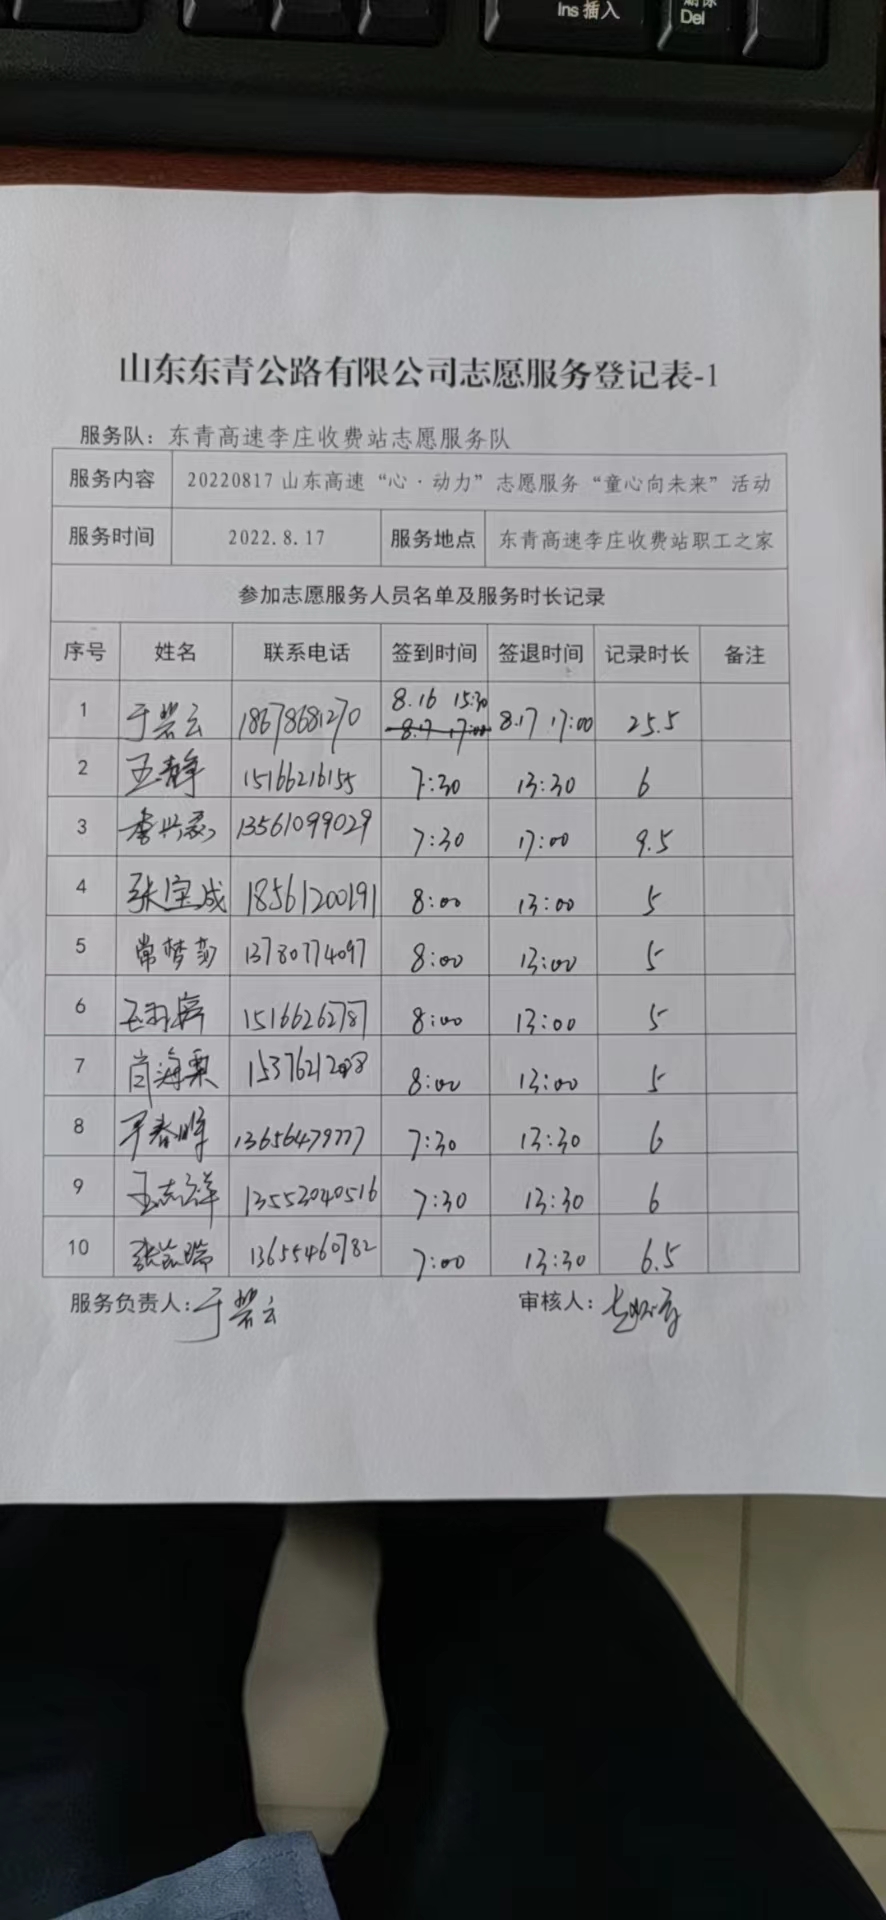 Ins 插入
Del
山东东青公路有限公司志愿服务登记表-1
服务队：东青高速李庄收费站志愿服务队
服务内容 20220817 山东高速“心·动力”志愿服务“童心向未来”活动
服务时间 2022.8.17 服务地点 东青高速李庄收费站职工之家
参加志愿服务人员名单及服务时长记录
序号 姓名 联系电话 签到时间 签退时间 记录时长 备注
1 于碧云 18678681270 8.16 15:30 8.17 17:00 8.17 17:00 25.5
2 王静 15166216155 7:30 13:30 6
3 李兴 13561099029 7:30 17:00 9.5
4 张宝成 18561200191 8:00 13:00 5
5 常梦 13780774097 8:00 13:00 5
6 王 15166262787 8:00 13:00 5
7 肖海栗 8:00 13:00 5
8 春晖 13656479777 7:30 13:30 6
9 王志祥 13553040516 7:30 13:30 6
10 张 瑞 13655460782 7:00 13:30 6.5
服务负责人：于碧云 审核人：